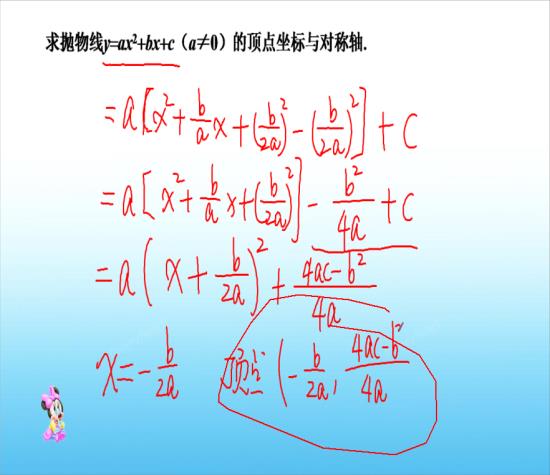 求抛物线y=ax²+bx+c（a≠0）的顶点坐标与对称轴.
=a[x²+b/a x+(b/2a)²-(b/2a)²]+c
=a[x²+b/a x+(b/2a)²]-b²/4a+c
=a(x+b/2a)²+4ac-b²/4a
x=-b/2a 顶点(-b/2a,4ac-b²/4a